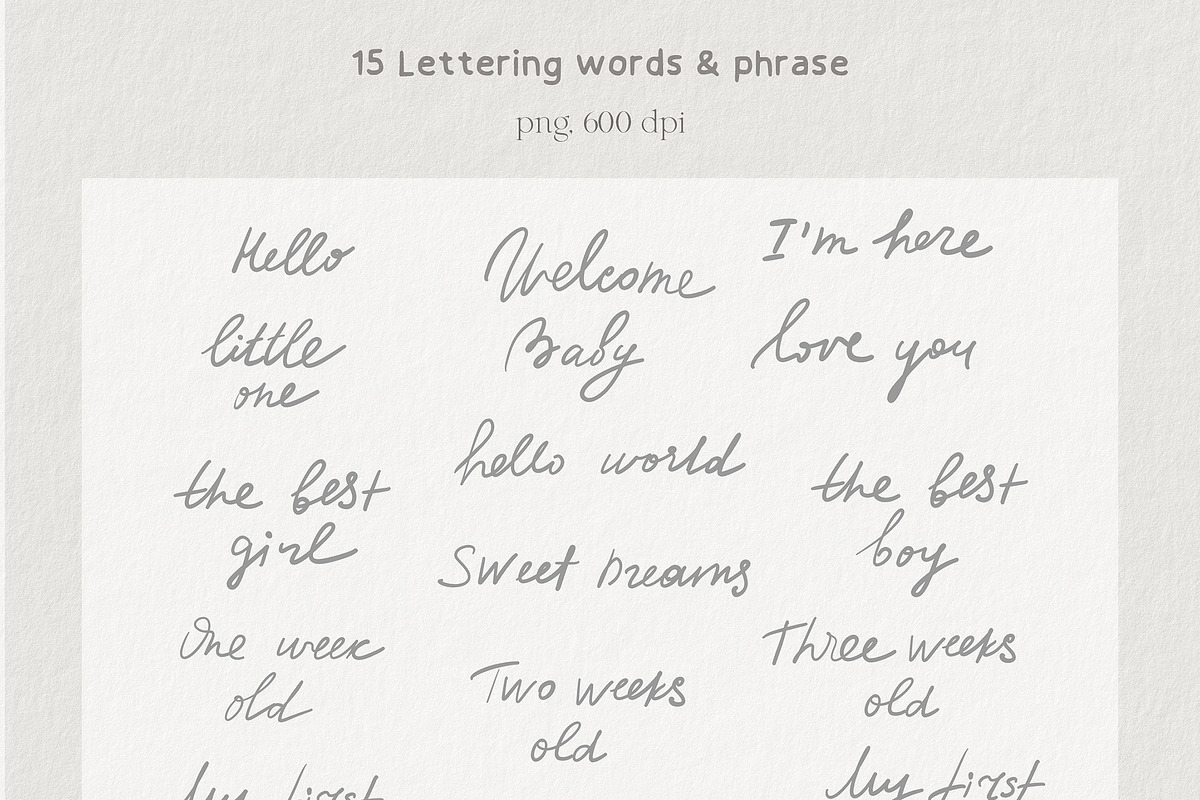 15 Lettering words & phrase
png, 600 dpi
Hello
little
one
Welcome
Baby
I'm here
love you
hello world
the best
girl
Sweet Dreams
the best
boy
One week
old
Two weeks
old
Three weeks
old
My first
My first